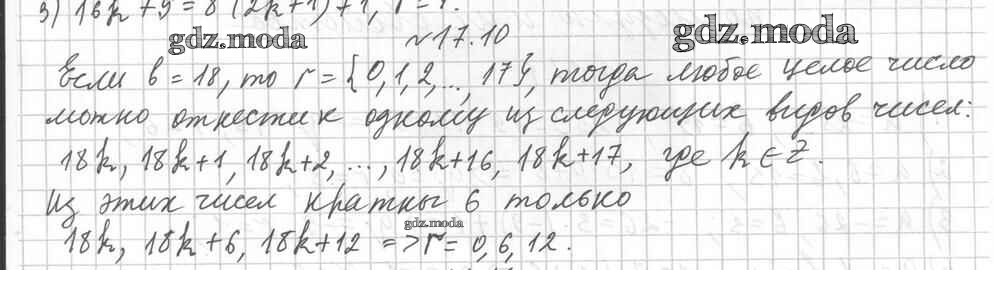 3) 16k + 9 = 8 (2k+1) + 1, r = 1.
gdz.moda
gdz.moda
№17.10
Если b = 18, то r = {0, 1, 2, ..., 17}, тогда любое целое число
можно отнести к одному из следующих видов чисел:
18k, 18k+1, 18k+2, ..., 18k+16, 18k+17, где k ∈ Z.
Из этих чисел кратны 6 только
gdz.moda
18k, 18k+6, 18k+12 => r = 0, 6, 12.